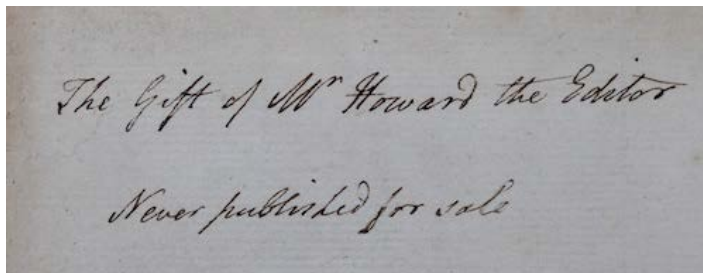 The Gift of Mr Howard the Editor
Never published for sale